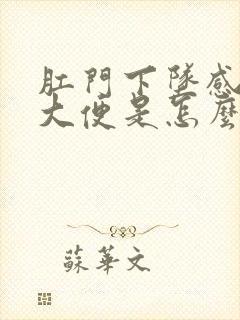 肛門下墜感
大便是怎麼
蘇華文